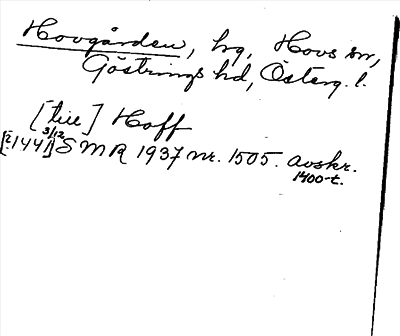 Hovgården, hg, Hovs sn,
Göstrings hd, Österg. l.
[till] Hoff
3/12
[?1441] SMR 1937 nr. 1505. avskr.
1400-t.